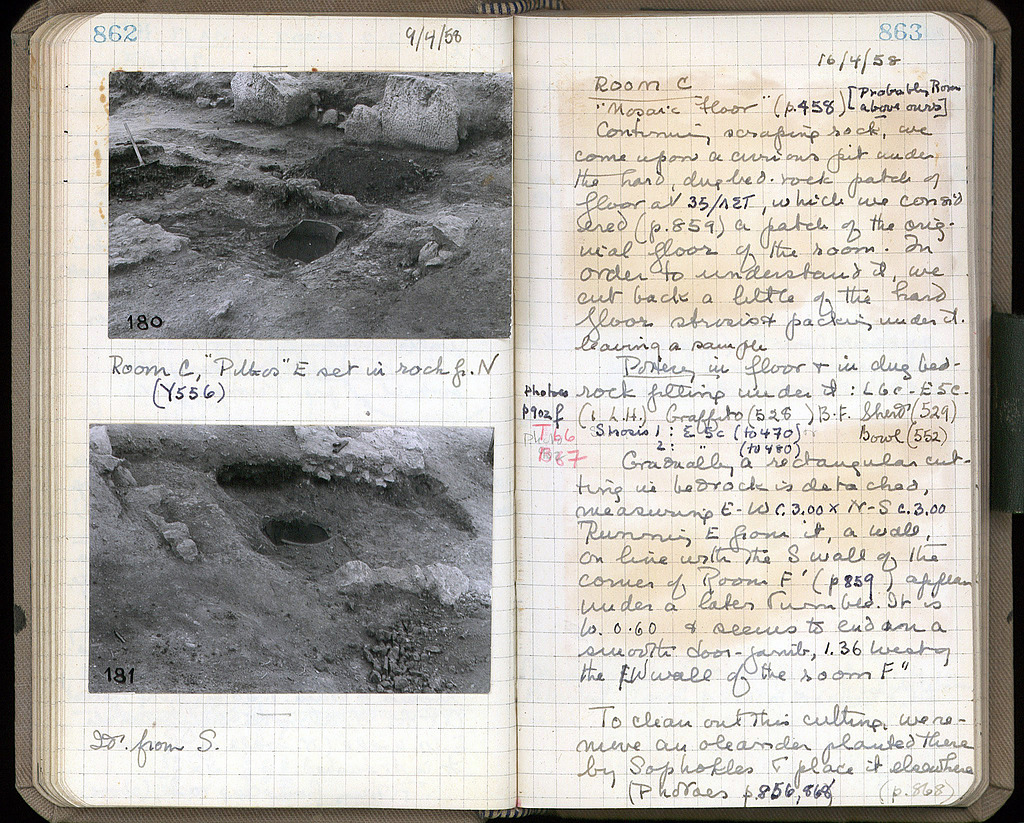 862
9/4/58
180
Room C, "Pithos" E set in rock fr. N
(Y556)
181
Do. from S.
863
16/4/58
Room C
"Mosaic Floor" (p.458) [Probably Room
above ours]
Continuing scraping rock, we
come upon a curious pit under
the hard, dug bed-rock patch of
floor at 35/ΛΣΤ, which we consid
ered (p.859) a patch of the orig-
inal floor of the room. In
order to understand it, we
cut back a little of the hard
floor strosis & packing under it.
leaving a sample
Pottery in floor & in dug bed-
rock filling under it: L6c-E5c.
Photos
p902f
(1 L.H.) Graffito (528) B.F. Sherd (529)
T66
Strosis 1: E 5c (to 470)
Bowl (552)
2: " (to 480)
Gradually a rectangular cut-
ting in bedrock is detached,
measuring E-W c.3.00 x N-S c.3.00
Running E from it, a wall,
on line with the S wall of the
corner of Room F' (p859) appears
under a later rumble. It is
w. 0.60 & seems to end on a
smooth door-jamb, 1.36 west of
the W wall of the room F"
To clean out this cutting, we re-
move an oleander planted there
by Sophokles & place it elsewhere
(Photoes p.856, 868 (p.868)